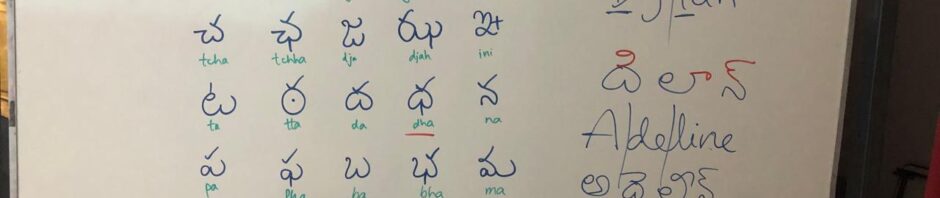 చ ఛ జ ఝ ఞ
tcha tchha dja djah ini
ట ఠ ద ధ న
ta tta da dha na
ప ఫ బ భ మ
pa pha ba bha ma
దిలాన్
Adeline